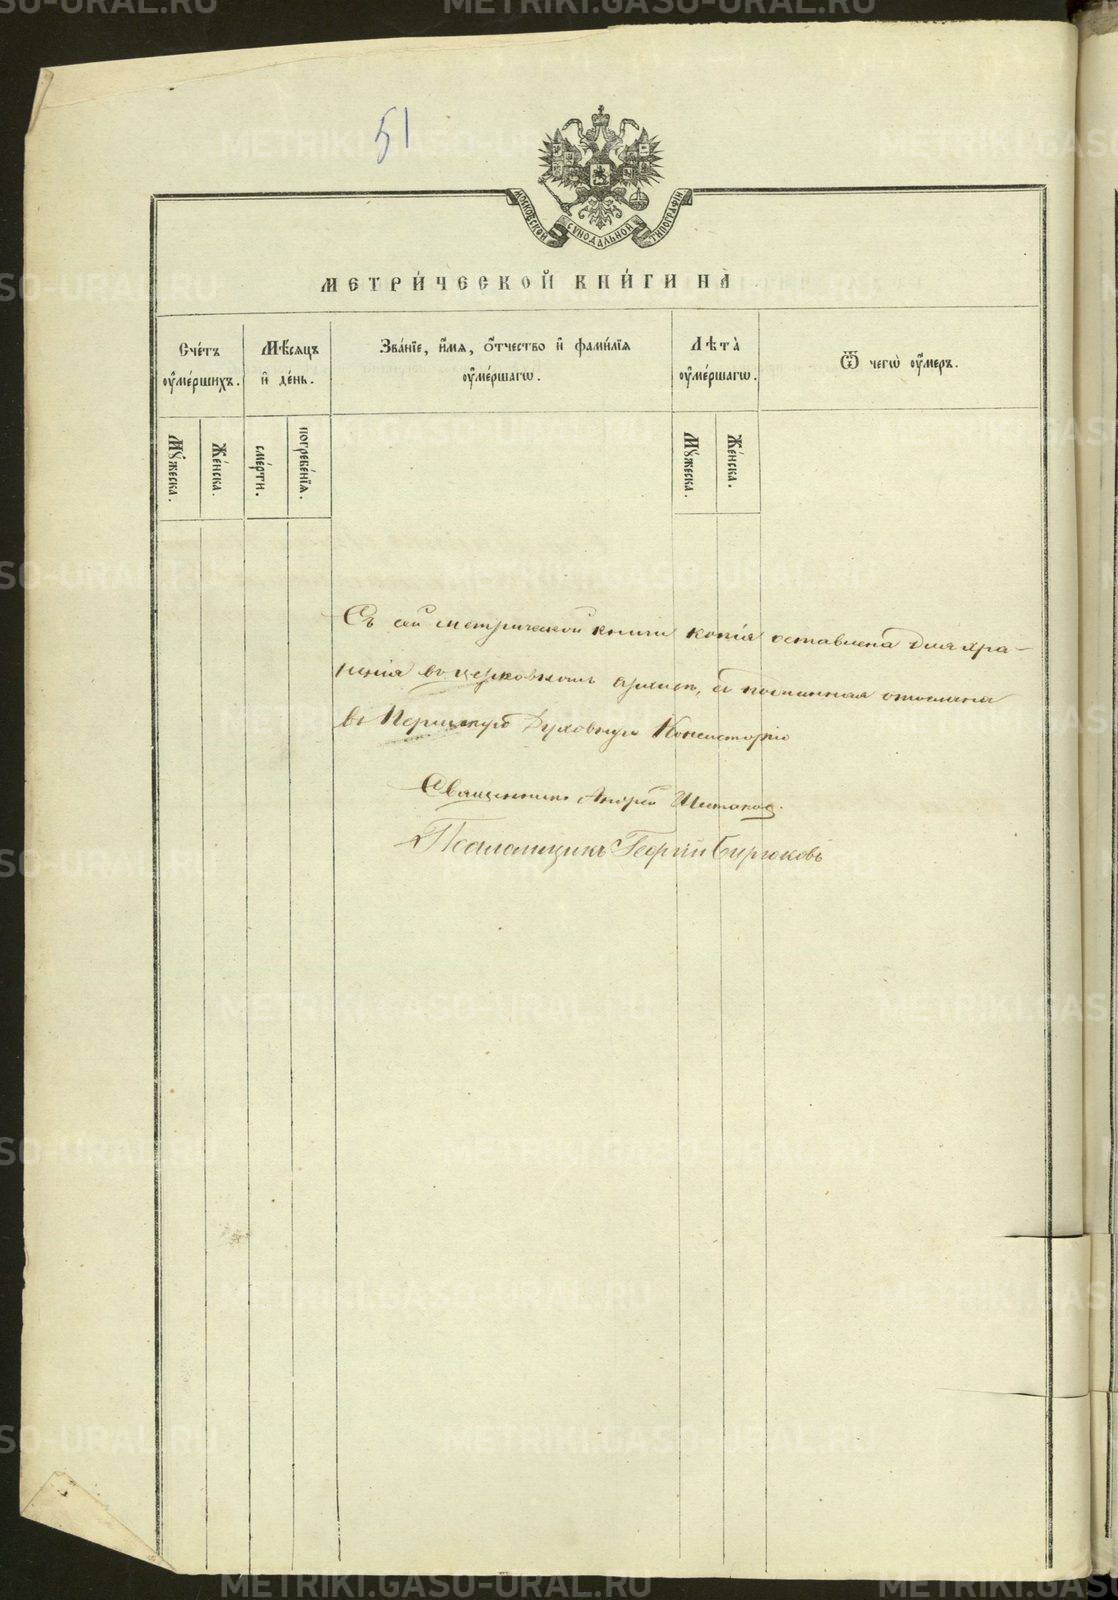 51
МОСКОВСКОЙ СѴНОДАЛЬНОЙ ТИПОГРАФІИ
МЕТРИ́ЧЕСКОЙ КНИ́ГИ НА̀
Сче́тъ ᲂу҆ме́ршихъ.
Мѣ́сяцъ и҆ де́нь.
Зва́нїе, и҆́мя, ѻ҆́тчество и҆ фами́лїя ᲂу҆ме́ршагѡ.
Лѣта̀ ᲂу҆ме́ршагѡ.
Ѿ чегѡ̀ ᲂу҆́меръ.
Мꙋ́жеска.
Же́нска.
сме́рти.
погребе́нїя.
Мꙋ́жеска.
Же́нска.
Съ сей метрической книги копія оставлена для хра-
ненія въ церковномъ архивѣ, а подлинная отослана
въ Пермскую Духовную Консисторію
Священникъ Андрей Шишовъ.
Псаломщикъ Георгій Бирюковъ
METRIKI.GASO-URAL.RU